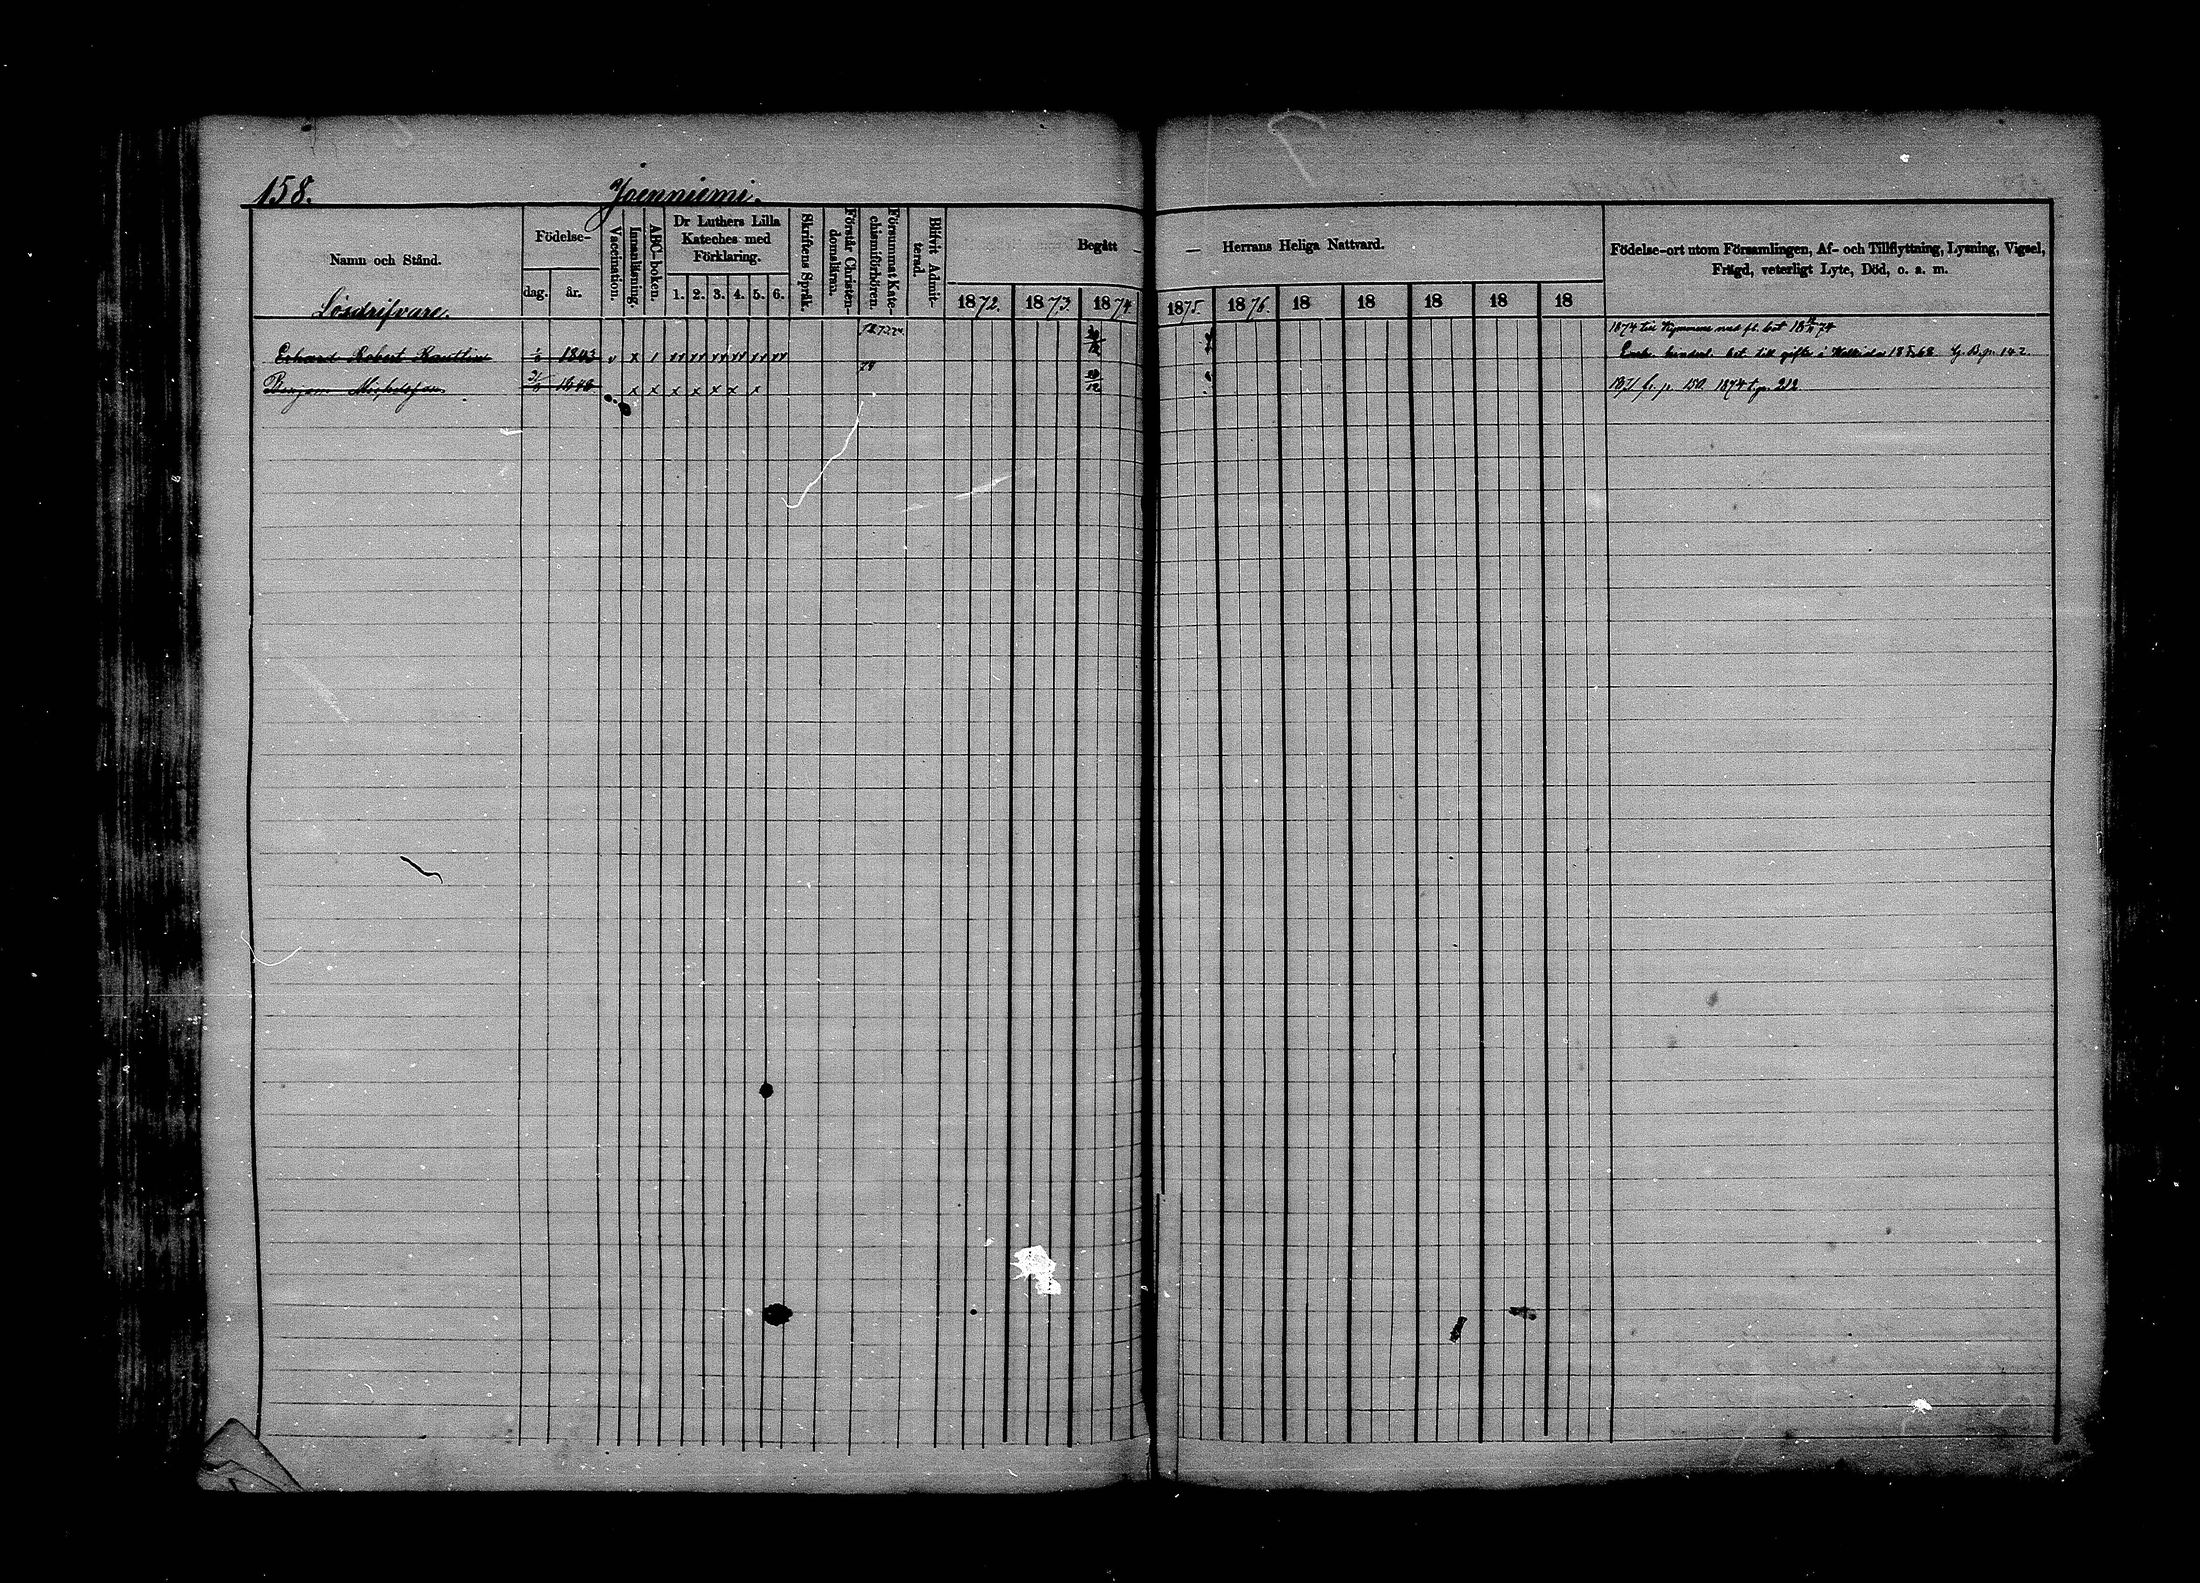 158. Joenniemi.
Namn och Stånd.
Födelse-
dag. år.
Vaccination.
Innanläsning.
ABC-boken.
Dr Luthers Lilla Kateches med Förklaring.
1. 2. 3. 4. 5. 6.
Skriftens Språk.
Förstår Christen-domsläran.
Försummat Kate-chismiförhören.
Blifvit Admit-terad.
Begått — — Herrans Heliga Nattvard.
1872. 1873. 1874. 1875. 1876. 18 18 18 18 18
Födelse-ort utom Församlingen, Af- och Tillflyttning, Lysning, Vigsel,
Frägd, veterligt Lyte, Död, o. a. m.
Lösdrifvare.
Erhard Robert 1843 v x
1874 till Kymmene med fl. bet
hinderl. bet till gifte i
x x x x x x x
fr. p. 150. 1874 t. p. 212